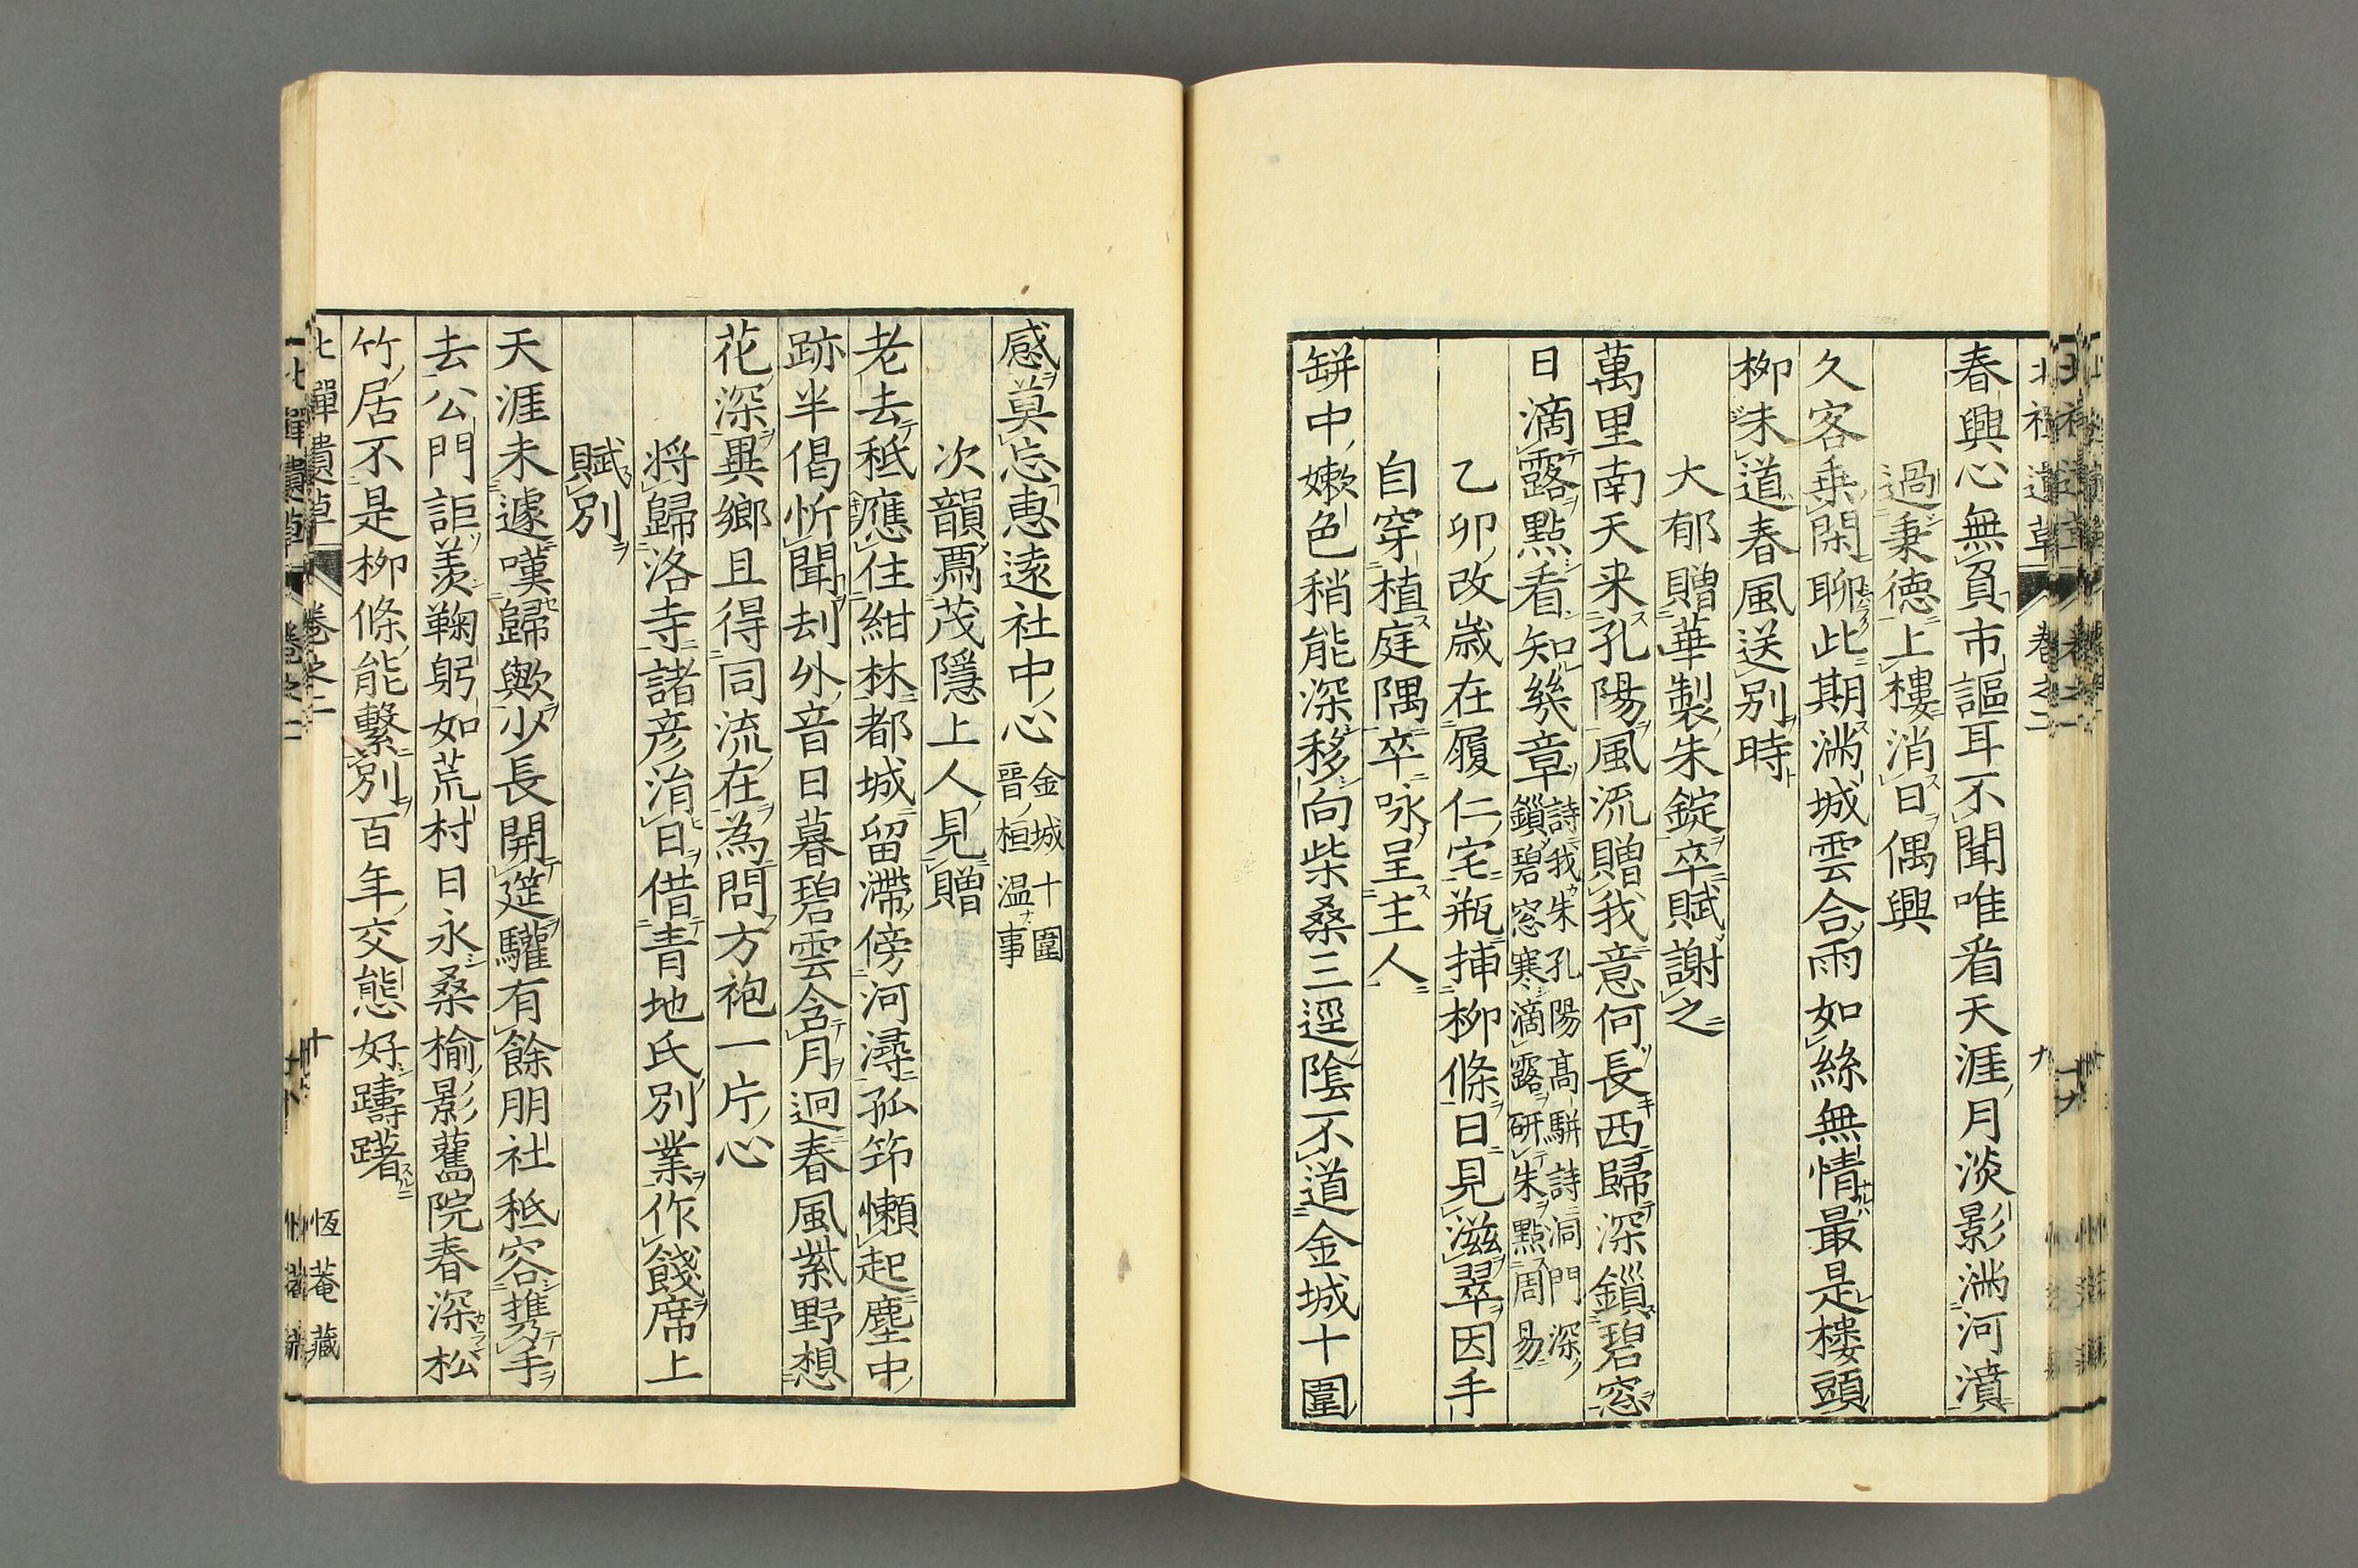 春興心無負市謳耳不聞唯看天涯月淡影滿河濆
過秉德上樓消日偶興
久客乘閑聊此期滿城雲合雨如絲無情最是樓頭
柳未道春風送別時
大郁贈華製朱錠卒賦謝之
萬里南天来孔陽風流贈我意何長西歸深鎖碧窓
日滴露點看知幾章
詩我朱孔陽高駢詩洞門深
鎖碧窓寒滴露研朱點周易
乙卯改歲在履仁宅瓶揷柳條日見滋翠因手
自穿植庭隅卒咏呈主人
缾中嫩色稍能深移向柴桑三逕陰不道金城十圍
北禅遺草 卷之二 九
感莫忘惠遠社中心
金城十圍
晉桓温事
次韻爲茂隱上人見贈
老去秪應住紺林都城留滯傍河潯孤筇懶起塵中
跡半偈忻聞刦外音日暮碧雲含月迥春風紫野想
花深異鄉且得同流在為問方袍一片心
将歸洛寺諸彦淯日借青地氏別業作餞席上
賦別
天涯未遽嘆歸歟少長開筵驩有餘朋社秪容携手
去公門詎羨鞠躬如荒村日永桑榆影舊院春深松
竹居不是柳條能繫別百年交態好躊躇
北禅遺草 卷之二 十 恆菴藏